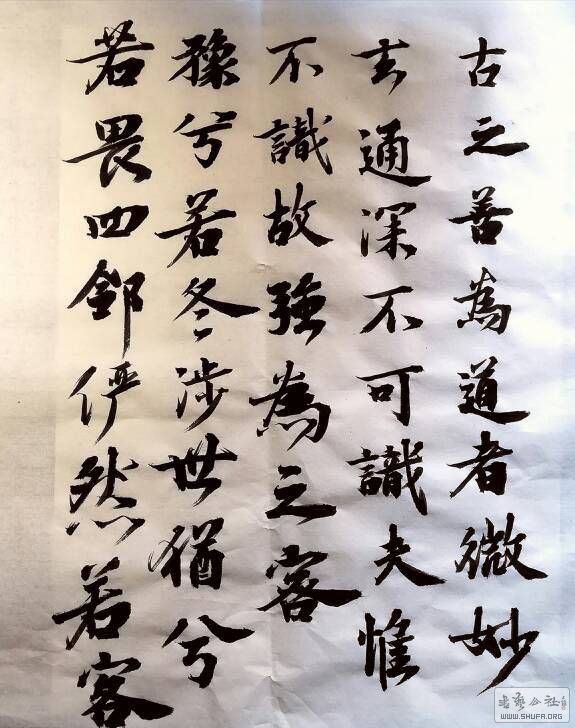 古之善為道者微妙
玄通深不可識夫惟
不識故強為之容
豫兮若冬涉世猶兮
若畏四邻俨然若客
书艺公社
WWW.SHUFA.ORG